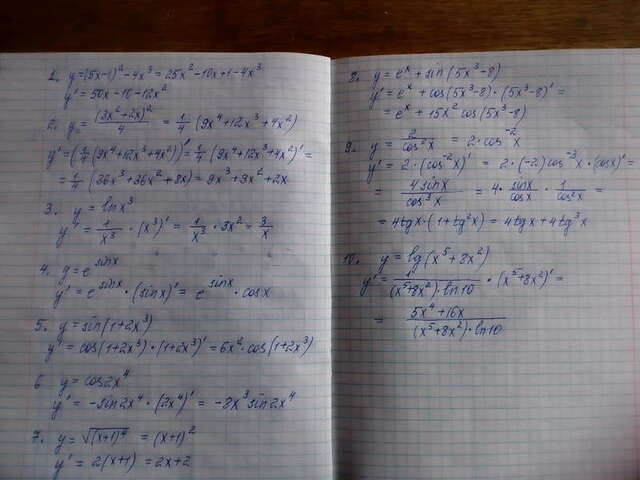 1. y=(5x-1)²-4x³=25x²-10x+1-4x³
y'=50x-10-12x²
2. y=(3x²+2x)²/4 = 1/4 (9x⁴+12x³+4x²)
y'=(1/4 (9x⁴+12x³+4x²))'=1/4 (9x⁴+12x³+4x²)'=
=1/4 (36x³+36x²+8x)=9x³+9x²+2x
3. y=lnx³
y'=1/x³·(x³)'=1/x³·3x²=3/x
4. y=e^sinx
y'=e^sinx·(sinx)'=e^sinx·cosx
5. y=sin(1+2x³)
y'=cos(1+2x³)·(1+2x³)'=6x²·cos(1+2x³)
6 y=cos2x⁴
y'=-sin2x⁴·(2x⁴)'=-8x³sin2x⁴
7. y=√(x+1)⁴=(x+1)²
y'=2(x+1)=2x+2
8. y=eˣ+sin(5x³-8)
y'=eˣ+cos(5x³-8)·(5x³-8)'=
=eˣ+15x²cos(5x³-8)
9. y=2/cos²x=2·cos⁻²x
y'=2·(cos⁻²x)'=2·(-2)cos⁻³x·(cosx)'=
=4sinx/cos³x=4·sinx/cosx·1/cos²x=
=4tgx·(1+tg²x)=4tgx+4tg³x
10. y=lg(x⁵+8x²)
y'=1/(x⁵+8x²)·ln10·(x⁵+8x²)'=
=5x⁴+16x/(x⁵+8x²)·ln10